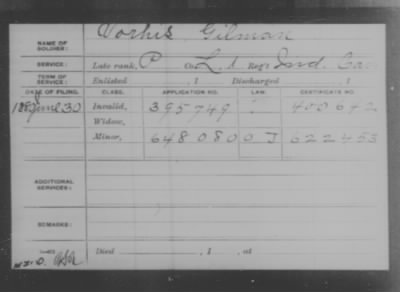 Vorhis, Gilman
NAME OF SOLDIER:
SERVICE: Late rank, P Co. L, 1 Reg't Ind. Ca
TERM OF SERVICE: Enlisted , 1 Discharged , 1
DATE OF FILING. CLASS. APPLICATION NO. LAW. CERTIFICATE NO.
June 30 Invalid, 395749 400642
Widow,
Minor, 648080 622453
ADDITIONAL SERVICES:
REMARKS:
Died , 1 , at